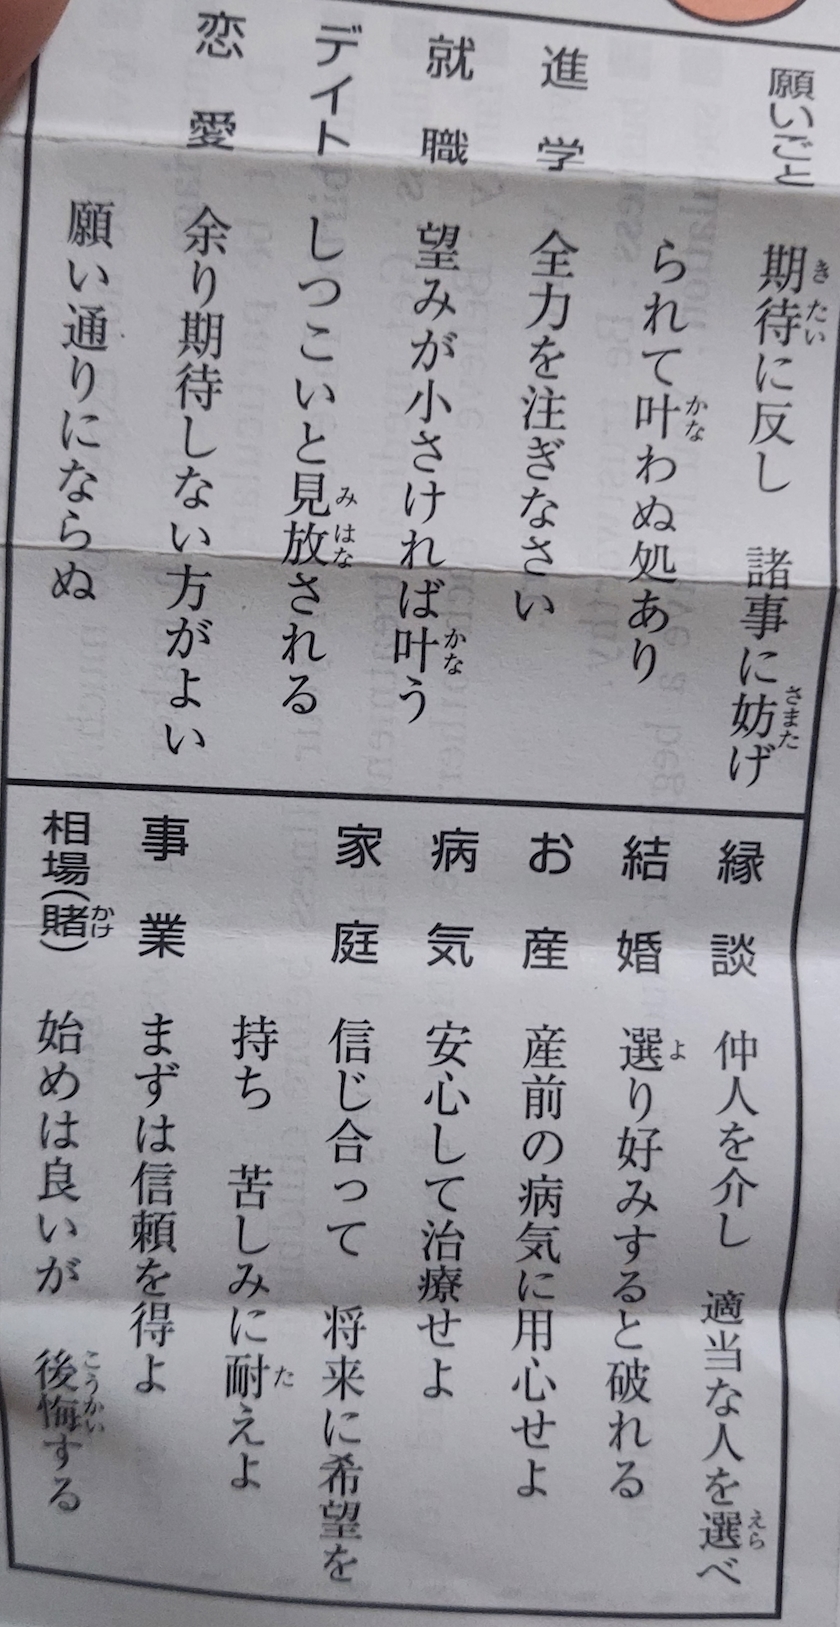 願いごと 期待に反し 諸事に妨げ
られて叶わぬ処あり
進学 全力を注ぎなさい
就職 望みが小さければ叶う
デイト しつこいと見放される
恋愛 余り期待しない方がよい
願い通りにならぬ
縁談 仲人を介し 適当な人を選べ
結婚 選り好みすると破れる
お産 産前の病気に用心せよ
病気 安心して治療せよ
家庭 信じ合って 将来に希望を
持ち 苦しみに耐えよ
事業 まずは信頼を得よ
相場(賭) 始めは良いが 後悔する